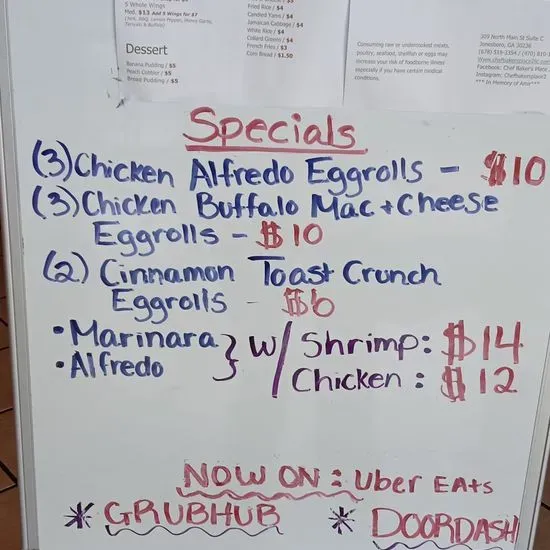 5 Whole Wings
Med. $13 Add 5 Wings for $7
Dessert
Banana Pudding / $5
Peach Cobbler / $5
Bread Pudding / $5
Fried Rice / $4
Candied Yams / $4
Jamaican Cabbage / $4
White Rice / $4
Collard Greens / $4
French Fries / $3
Corn Bread / $1.50
Consuming raw or undercooked meats,
poultry, seafood, shellfish or eggs may
increase your risk of foodborne illness
especially if you have certain medical
conditions.
309 North Main St Suite C
Jonesboro, GA 30236
Facebook: Chef Baker's Place
Instagram: Chefbakersplace2
*** In Memory of Ama***
Specials
(3) Chicken Alfredo Eggrolls - $10
(3) Chicken Buffalo Mac + Cheese
Eggrolls - $10
(2) Cinnamon Toast Crunch
Eggrolls - $6
• Marinara } w/ Shrimp: $14
• Alfredo Chicken: $12
NOW ON: Uber EAts
* GRUBHUB * DOORDASH